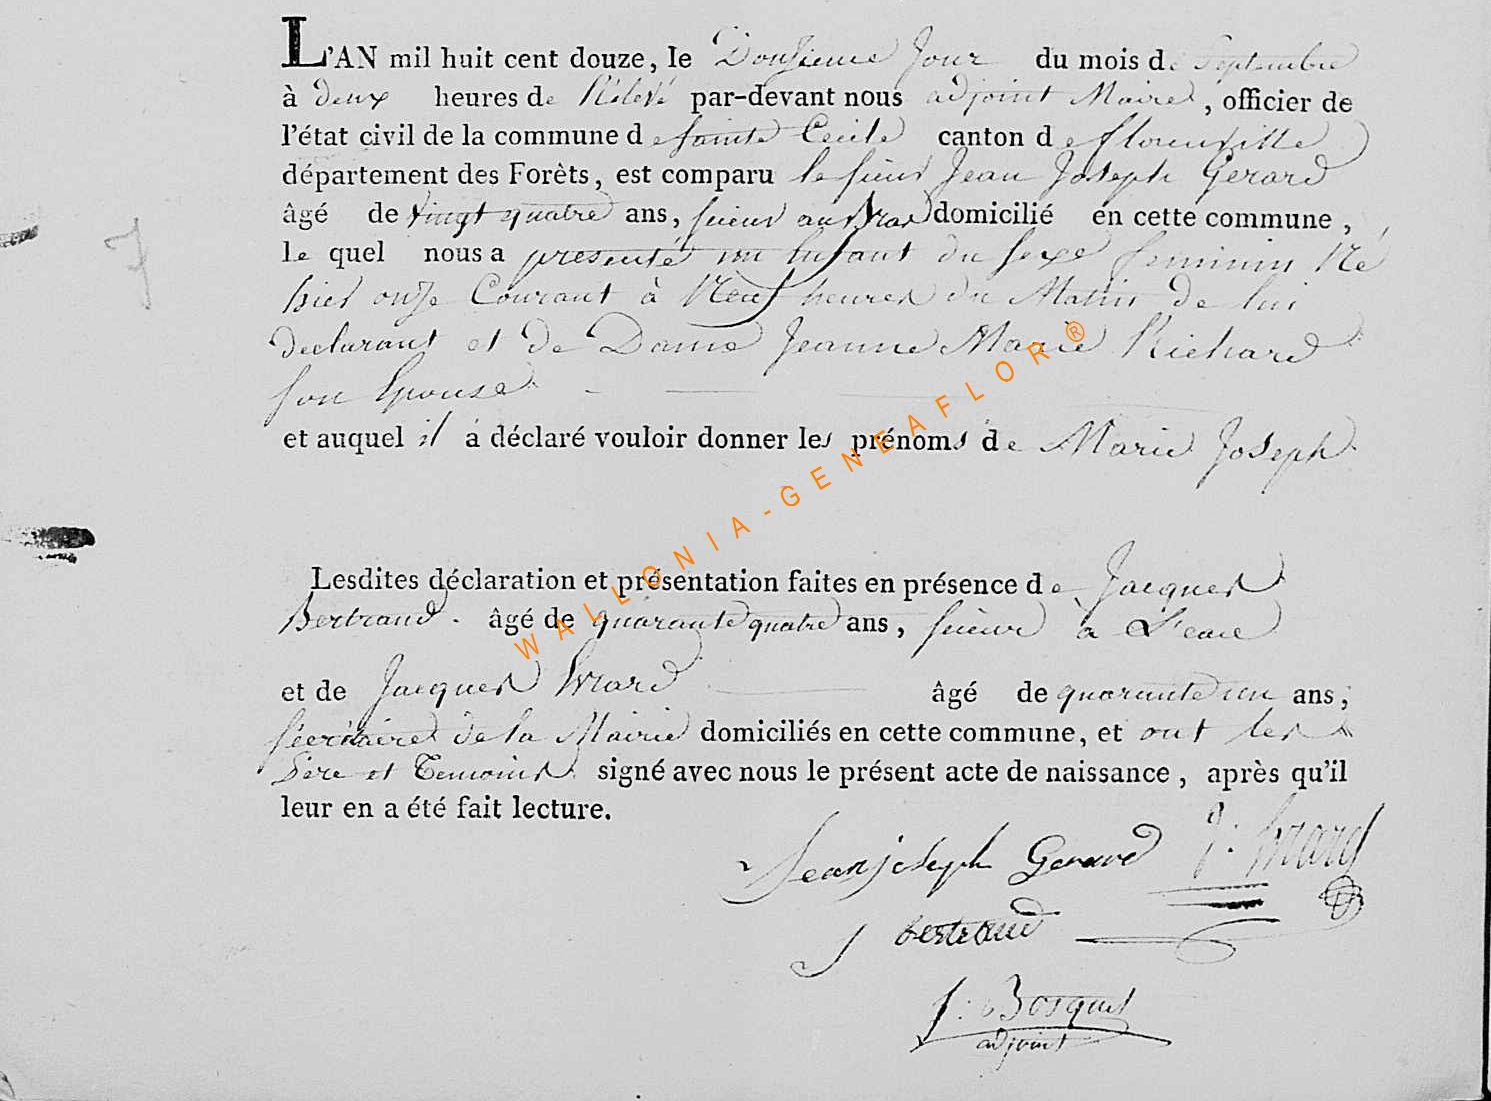 L'AN mil huit cent douze, le Douzieme Jour du mois de Septembre
à deux heures de Rélevé par-devant nous adjoint Maire, officier de
l'état civil de la commune de Sainte Cecile canton de florenville
département des Forèts, est comparu le sieur Jean Joseph Gerard
âgé de vingt quatre ans, scieur domicilié en cette commune,
le quel nous a presenté un Enfant du sexe feminin Né
hier onze Courant à Neuf heures du Matin de lui
declarant et de Dame Jeanne Marie Richard
son Epouse
et auquel il a déclaré vouloir donner les prénoms de Marie Joseph
Lesdites déclaration et présentation faites en présence de Jacques
Bertrand. âgé de quarante quatre ans, scieur à L'eau
et de Jacques Evrard âgé de quarante un ans,
sécrétaire de la Mairie domiciliés en cette commune, et ont les
Père et Temoins signé avec nous le présent acte de naissance, après qu'il
leur en a été fait lecture.
Jean joseph Gerard J. Evrard
J Bertrand
J: Bosquet
adjoint
7
WALLONIA-GENEAFLOR®